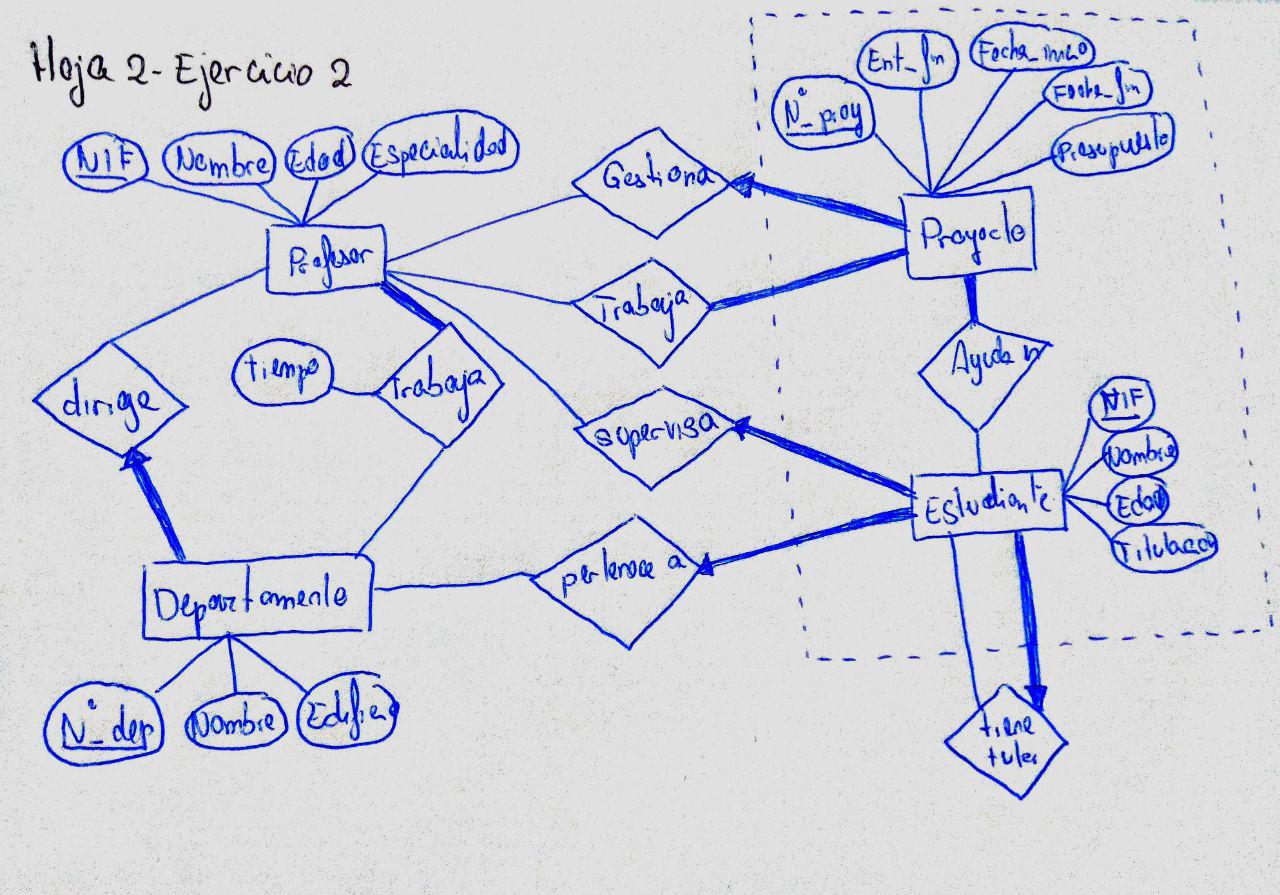 Hoja 2 - Ejercicio 2
NIF
Nombre
Edad
Especialidad
Profesor
Gestiona
Nº_proy
Ent_fin
Fecha_inicio
Fecha_fin
Presupuesto
Proyecto
Trabaja
dirige
tiempo
Trabaja
supervisa
Ayudan
NIF
Nombre
Edad
Titulacion
Estudiante
pertenece a
Departamento
Nº_dep
Nombre
Edificio
tiene
tutor